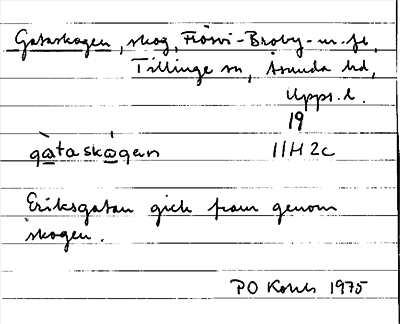 Gataskogen, skog, Frösvi-Broby-m.fl.,
Tillinge sn, Åsunda hd,
Upps. l.
19
gàtaskógen 11H2c
Eriksgatan gick fram genom
skogen.
PO 1975